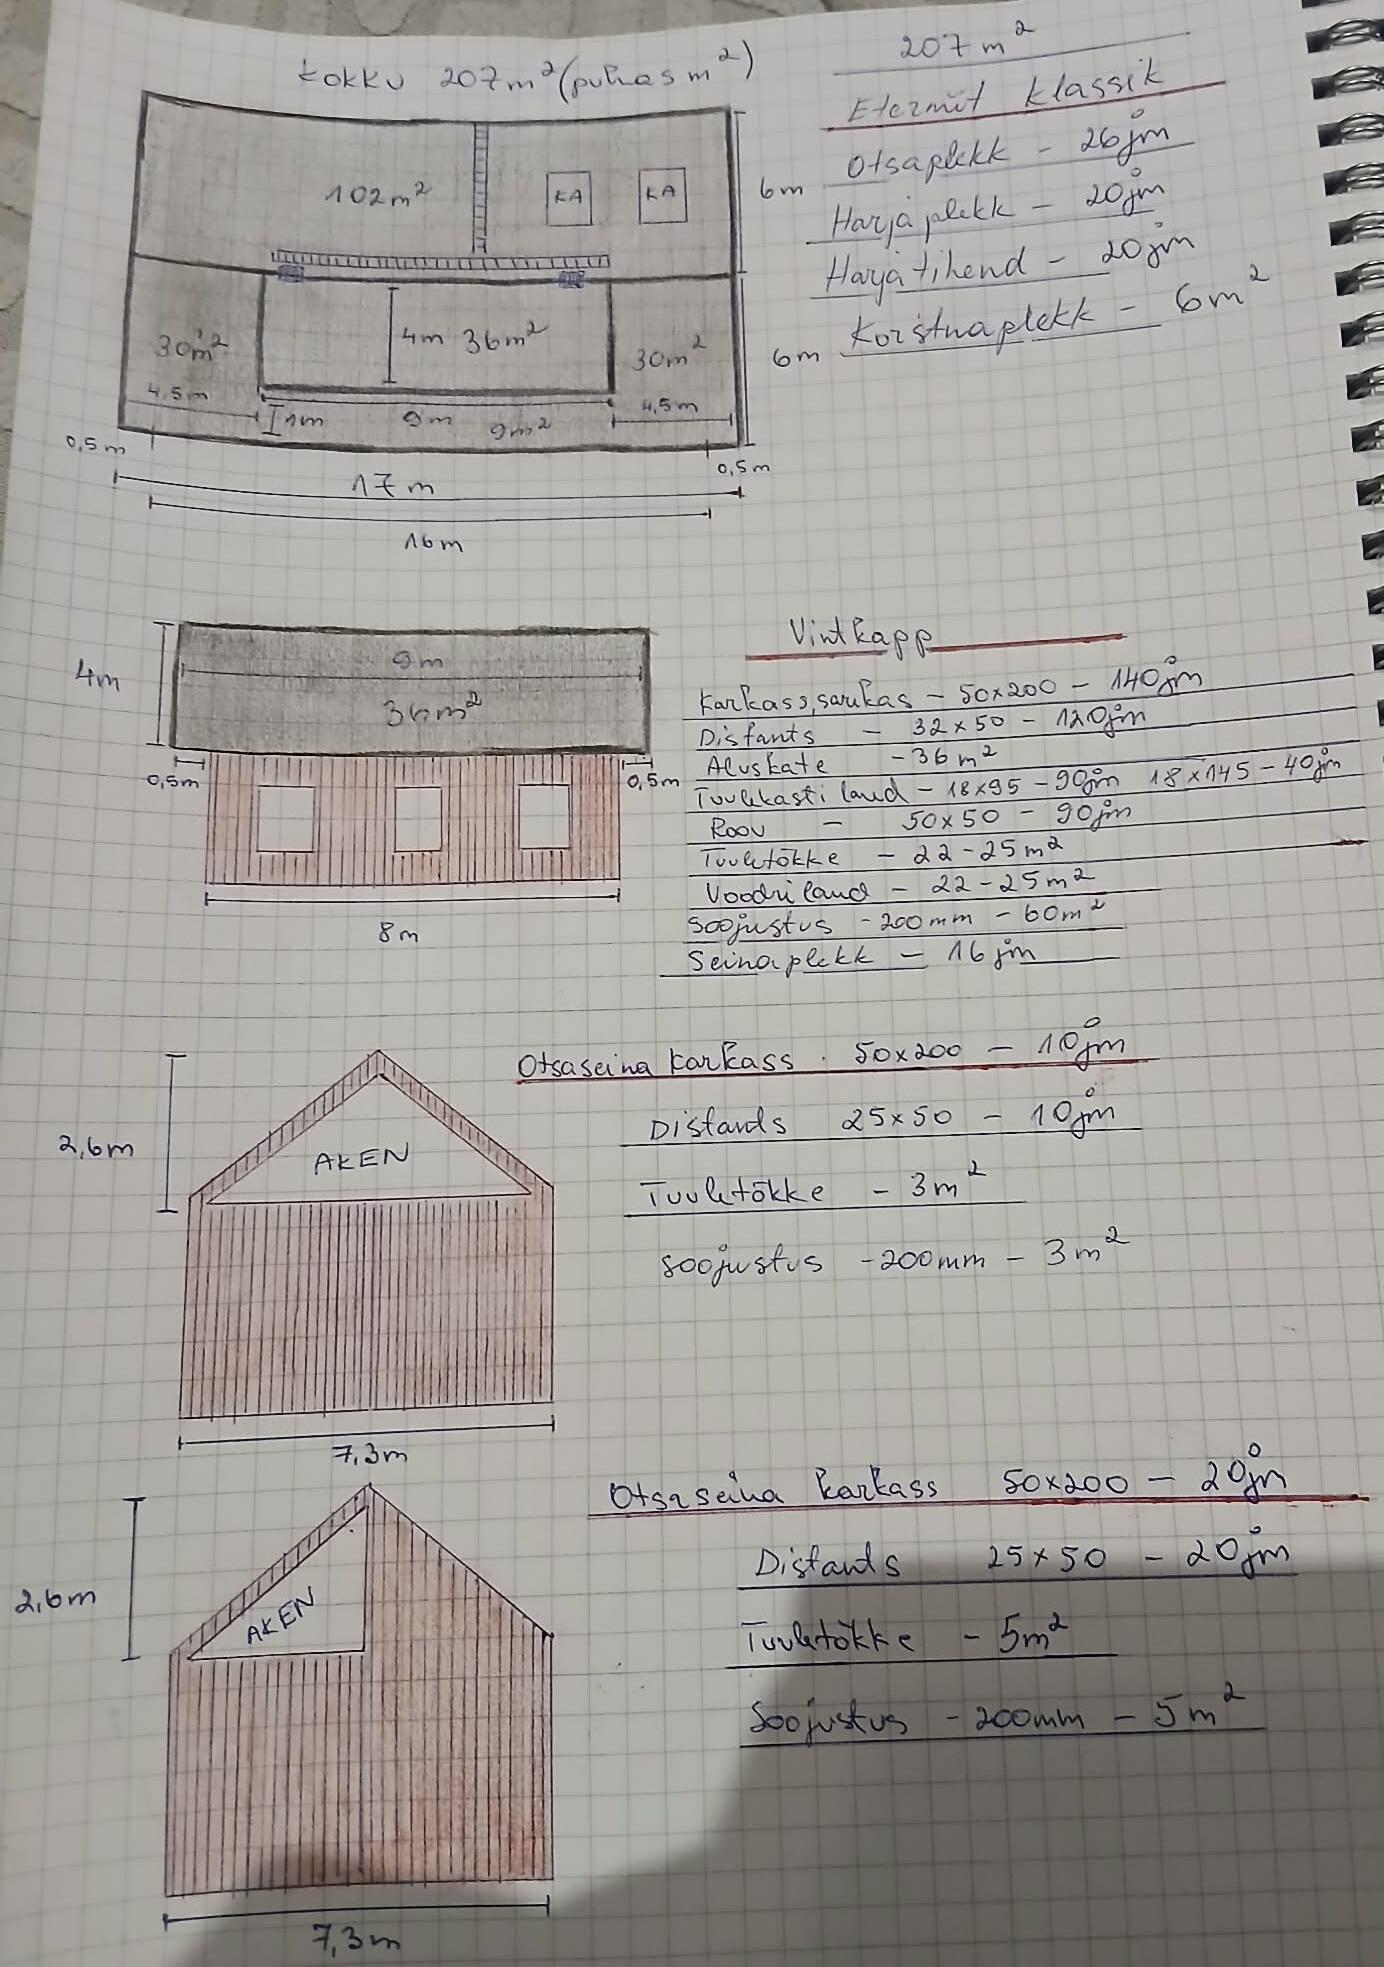 Kokku 207m²(puhas m²)
102m²
KA
KA
6m
30m²
4m 36m²
30m²
6m
4,5m
1m
9m
9m²
4,5m
0,5m
0,5m
17m
16m
207m²
Eternit klassik
Otsaplekk - 26jm
Harjaplekk - 20jm
Harjatihend - 20jm
Korstnaplekk - 6m²
4m
9m
36m²
0,5m
0,5m
8m
Vintkapp
Karkass, sarikas - 50x200 - 140jm
Distants - 32x50 - 120jm
Aluskate - 36m²
Tuulekasti laud - 18x95 - 90jm 18x145 - 40jm
Roov - 50x50 - 90jm
Tuuletõkke - 22-25m²
Voodrilaud - 22-25m²
Soojustus - 200mm - 60m²
Seinaplekk - 16jm
2,6m
AKEN
7,3m
Otsaseina karkass. 50x200 - 10jm
Distants 25x50 - 10jm
Tuuletõkke - 3m²
Soojustus - 200mm - 3m²
2,6m
AKEN
7,3m
Otsaseina karkass 50x200 - 20jm
Distants 25x50 - 20jm
Tuuletõkke - 5m²
Soojustus - 200mm - 5m²